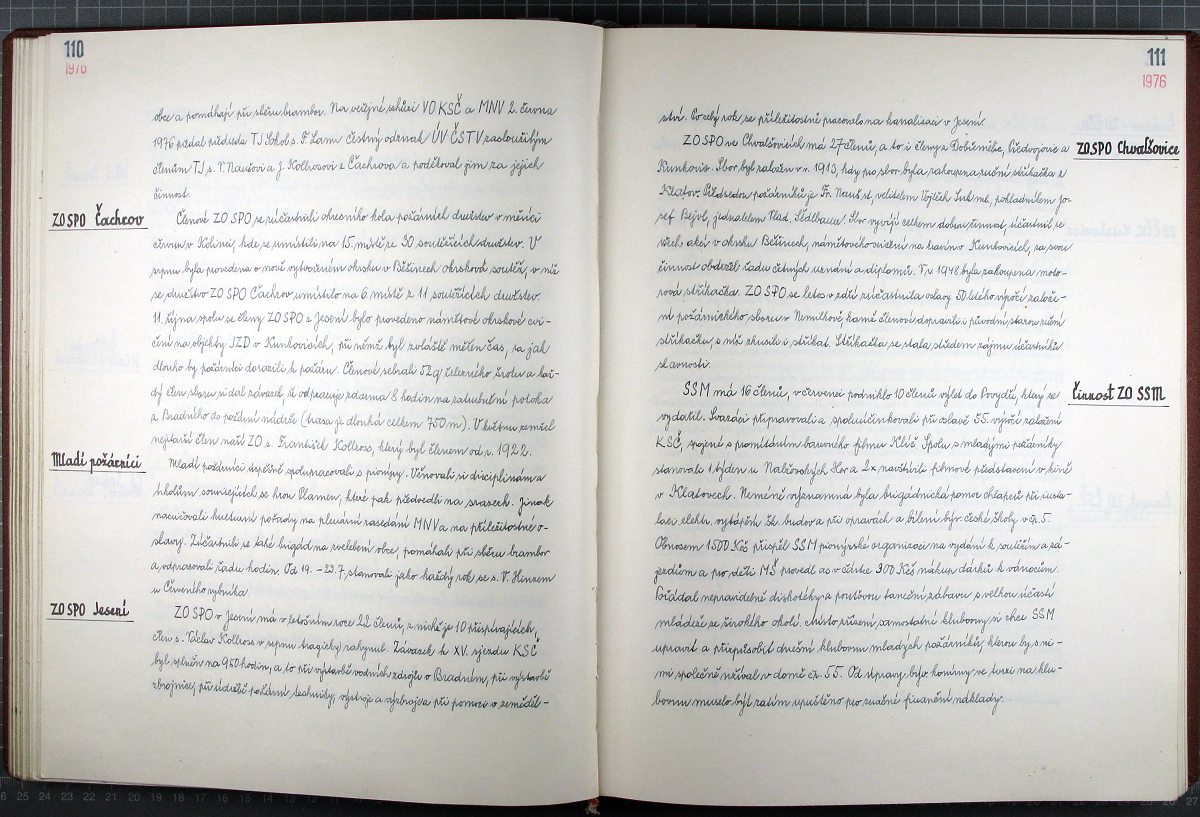 110
1976
obce a pomáhají při sběru brambor. Na veřejné schůzi VO KSČ a MNV 2. června
1976 předal předseda TJ Sokol s. F. Lami čestný odznak ÚV ČSTV zasloužilým
členům TJ s. V. Naušovi a J. Kollrosovi z Čachrova a poděkoval jim za jejich
činnost.
ZO SPO Čachrov
Členové ZO SPO se zúčastnili okresního kola požárních družstev v měsíci
červnu v Kolinci, kde se umístili na 15. místě z 30 soutěžících družstev. V
srpnu byla provedena v nově vytvořeném okrsku v Běšinech okrsková soutěž, v níž
se družstvo ZO SPO Čachrov umístilo na 6. místě z 11 soutěžících družstev.
11. října spolu se členy ZO SPO z Jesení bylo provedeno námětové okrskové cvi-
čení na objekty JZD v Kunkovicích, při němž byl zvláště měřen čas, za jak
dlouho by požárníci dorazili k požáru. Členové sebrali 52 q železného šrotu a kaž-
dý člen sboru si dal závazek že odpracuje zdarma 8 hodin na zatrubnění potoka
z Bradného do požární nádrže (trasa je dlouhá celkem 750 m). V květnu zemřel
nejstarší člen naší ZO s. František Kollross, který byl členem od r. 1922.
Mladí požárníci
Mladí požárníci úspěšně spolupracovali s pionýry. Věnovali si disciplinám a
úkolům souvisejících se hrou Plamen, které pak předvedli na srazech. Jinak
nacvičovali kulturní pořady na plenární zasedání MNV a na příležitostné o-
slavy. Zúčastnili se také brigád na zvelebení obce, pomáhali při sběru brambor
a odpracovali řadu hodin. Od 19. - 23. 7. stanovali jako každý rok se s. V. Hinsem
u Červeného rybníka.
ZO SPO Jesení
ZO SPO v Jesení má v letošním roce 22 členů, z nichž je 10 přispívajících,
člen s. Václav Kollross v srpnu tragicky zahynul. Závazek k XV. sjezdu KSČ
byl splněn na 950 hodin, a to při výstavbě vodních zdrojů v Bradném, při výstavbě
zbrojnice, při údržbě požární techniky, výstroje a výzbroje a při pomoci v zeměděl-
111
1976
ství. Po celý rok se příležitostně pracovalo na kanalizaci v Jesení.
ZO SPO Chvalšovice
ZO SPO ve Chvalšovicích má 27 členů, a to i členy z Dobřemilic, Předvojovic a
Kunkovic. Sbor byl založen v r. 1913, kdy pro sbor byla zakoupena ruční stříkačka z
Klatov. Předsedou požárníků je Fr. Nauš st., velitelem Vojtěch Suchý ml., pokladníkem Jo-
sef Bejvl, jednatelem Vlad. Sedlbauer. Sbor vyvíjí celkem dobrou činnost, účastnil se
všech akcí v okrsku Běšinech, námětového cvičení na továrnu v Kuntovicích, za svou
činnost obdržel řadu čestných uznání a diplomů. V r. 1948 byla zakoupena moto-
rová stříkačka. ZO SPO se letos v září zúčastnila oslavy 50 letého výročí založe-
ní požárnického sboru v Nemilkově, kamž členové dopravili i původní starou ruční
stříkačku, s níž zkusili i stříkat. Stříkačka se stala středem zájmu účastníků
slavnosti.
Činnost ZO SSM
SSM má 16 členů, v červenci podniklo 10 členů výlet do Povydří, který se
vydařil. Svazáci připravovali a spoluúčinkovali při oslavě 55. výročí založení
KSČ, spojené s promítáním barevného filmu Klíč. Spolu s mladými požárníky
stanovali 1 týden u Nalžovských Hor a 2x navštívili filmové představení v kině
v Klatovech. Neméně významná byla brigádnická pomoc chlapců při insta-
laci elektr. vytápění šk. budov a při opravách a bílení býv. české školy v čp. 5.
Obnosem 1500 Kčs přispěl SSM pionýrské organizaci na vydání k soutěžím a zá-
jezdům a pro děti MŠ provedl as v částce 300 Kčs nákup dárků k vánocům.
Pořádal nepravidelně diskotéky a pouťovou taneční zábavu s velkou účastí
mládeže ze širokého okolí. Místo zřízení samostatné klubovny si chce SSM
upravit a přizpůsobit dnešní klubovnu mladých požárníků, kterou by s ni-
mi společně užíval v domě čp. 55. Od úpravy býv. konírny ve tvrzi na klu-
bovnu muselo být zatím upuštěno pro značné finanční náklady.